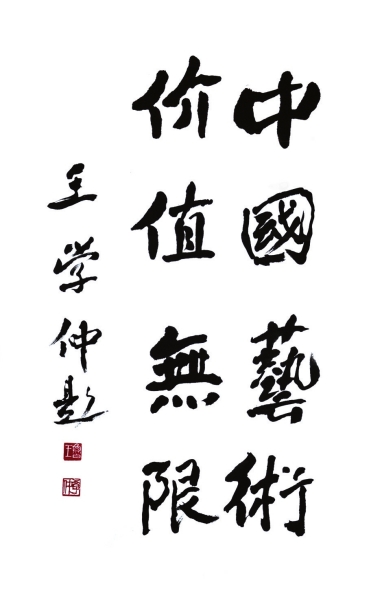 中國藝術
价值無限
王学仲題